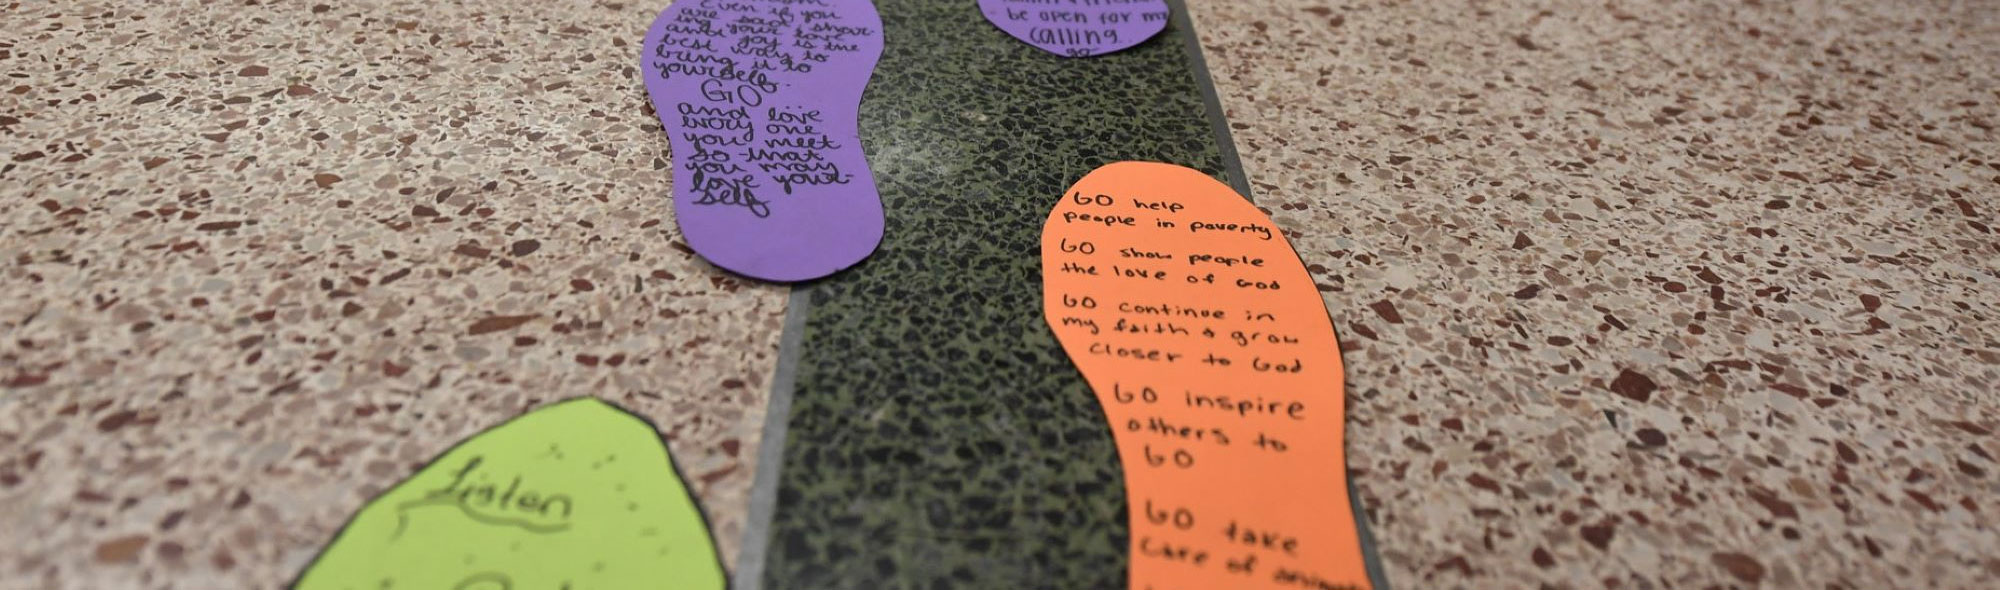 Even if you
are sad shar-
ing your love
and joy is the
best way to
bring it to
yourself.
GO
and love
every one
you meet
so that
you may
love your-
self
be open for my
calling
go
GO help
people in poverty
GO show people
the love of God
GO continue in
my faith & grow
closer to God
GO inspire
others to
GO
GO take
care of
Listen